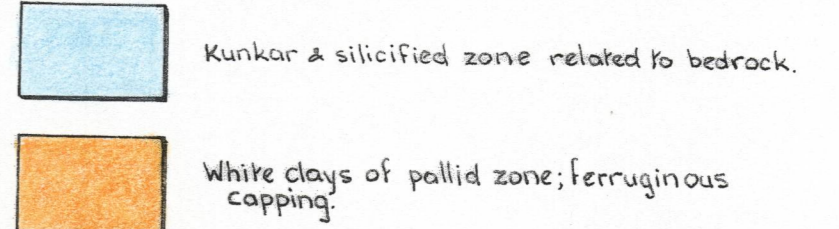 Kunkar & silicified zone related to bedrock.
White clays of pallid zone; ferruginous
capping.